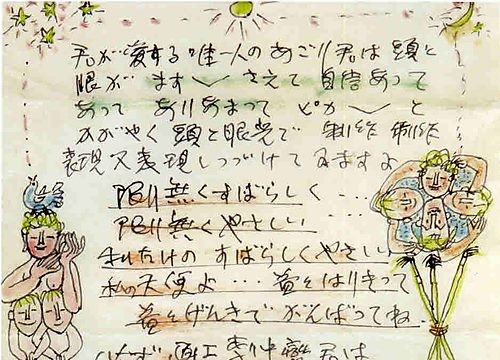 君が愛する唯一人のあごり君は頭と
眼が ます〳〵 さえて 自信あって
あって ありあまって ピカ〳〵 と
かがやく 頭と眼光で 制作 制作
表現又表現しつづけて ますよ
限り無くすばらしく …
限り無くやさしい …
それだけの すばらしくやさしい
私の天使よ … 益々はりきって
益々げんきで がんばってね